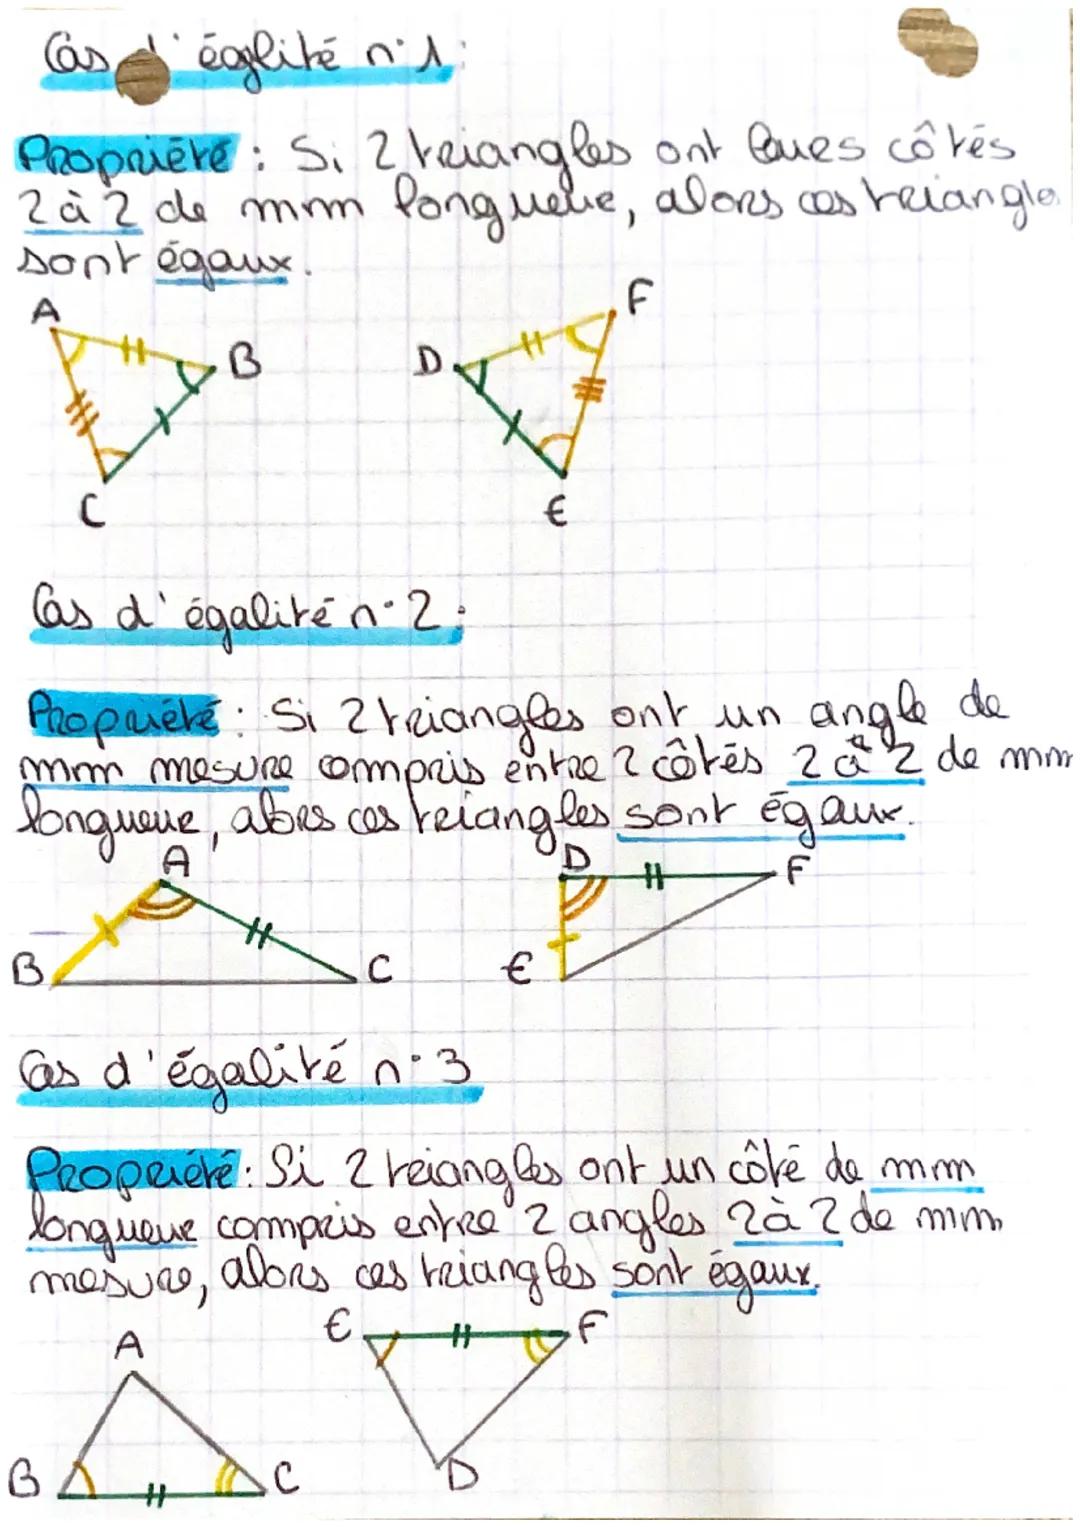 Cas d'églité n°1:
Propriété : Si 2 triangles ont leurs côtés
2 à 2 de mm longueur, alors ces triangles
sont égaux.
A B C
D F E
Cas d'égalité n°2:
Propriété : Si 2 triangles ont un angle de
mm mesure compris entre 2 côtés 2 à 2 de mm
longueur, alors ces triangles sont égaux.
A B C
D F E
Cas d'égalité n°3
Propriété : Si 2 triangles ont un côté de mm
longueur compris entre 2 angles 2 à 2 de mm
mesure, alors ces triangles sont égaux.
E F D
A B C